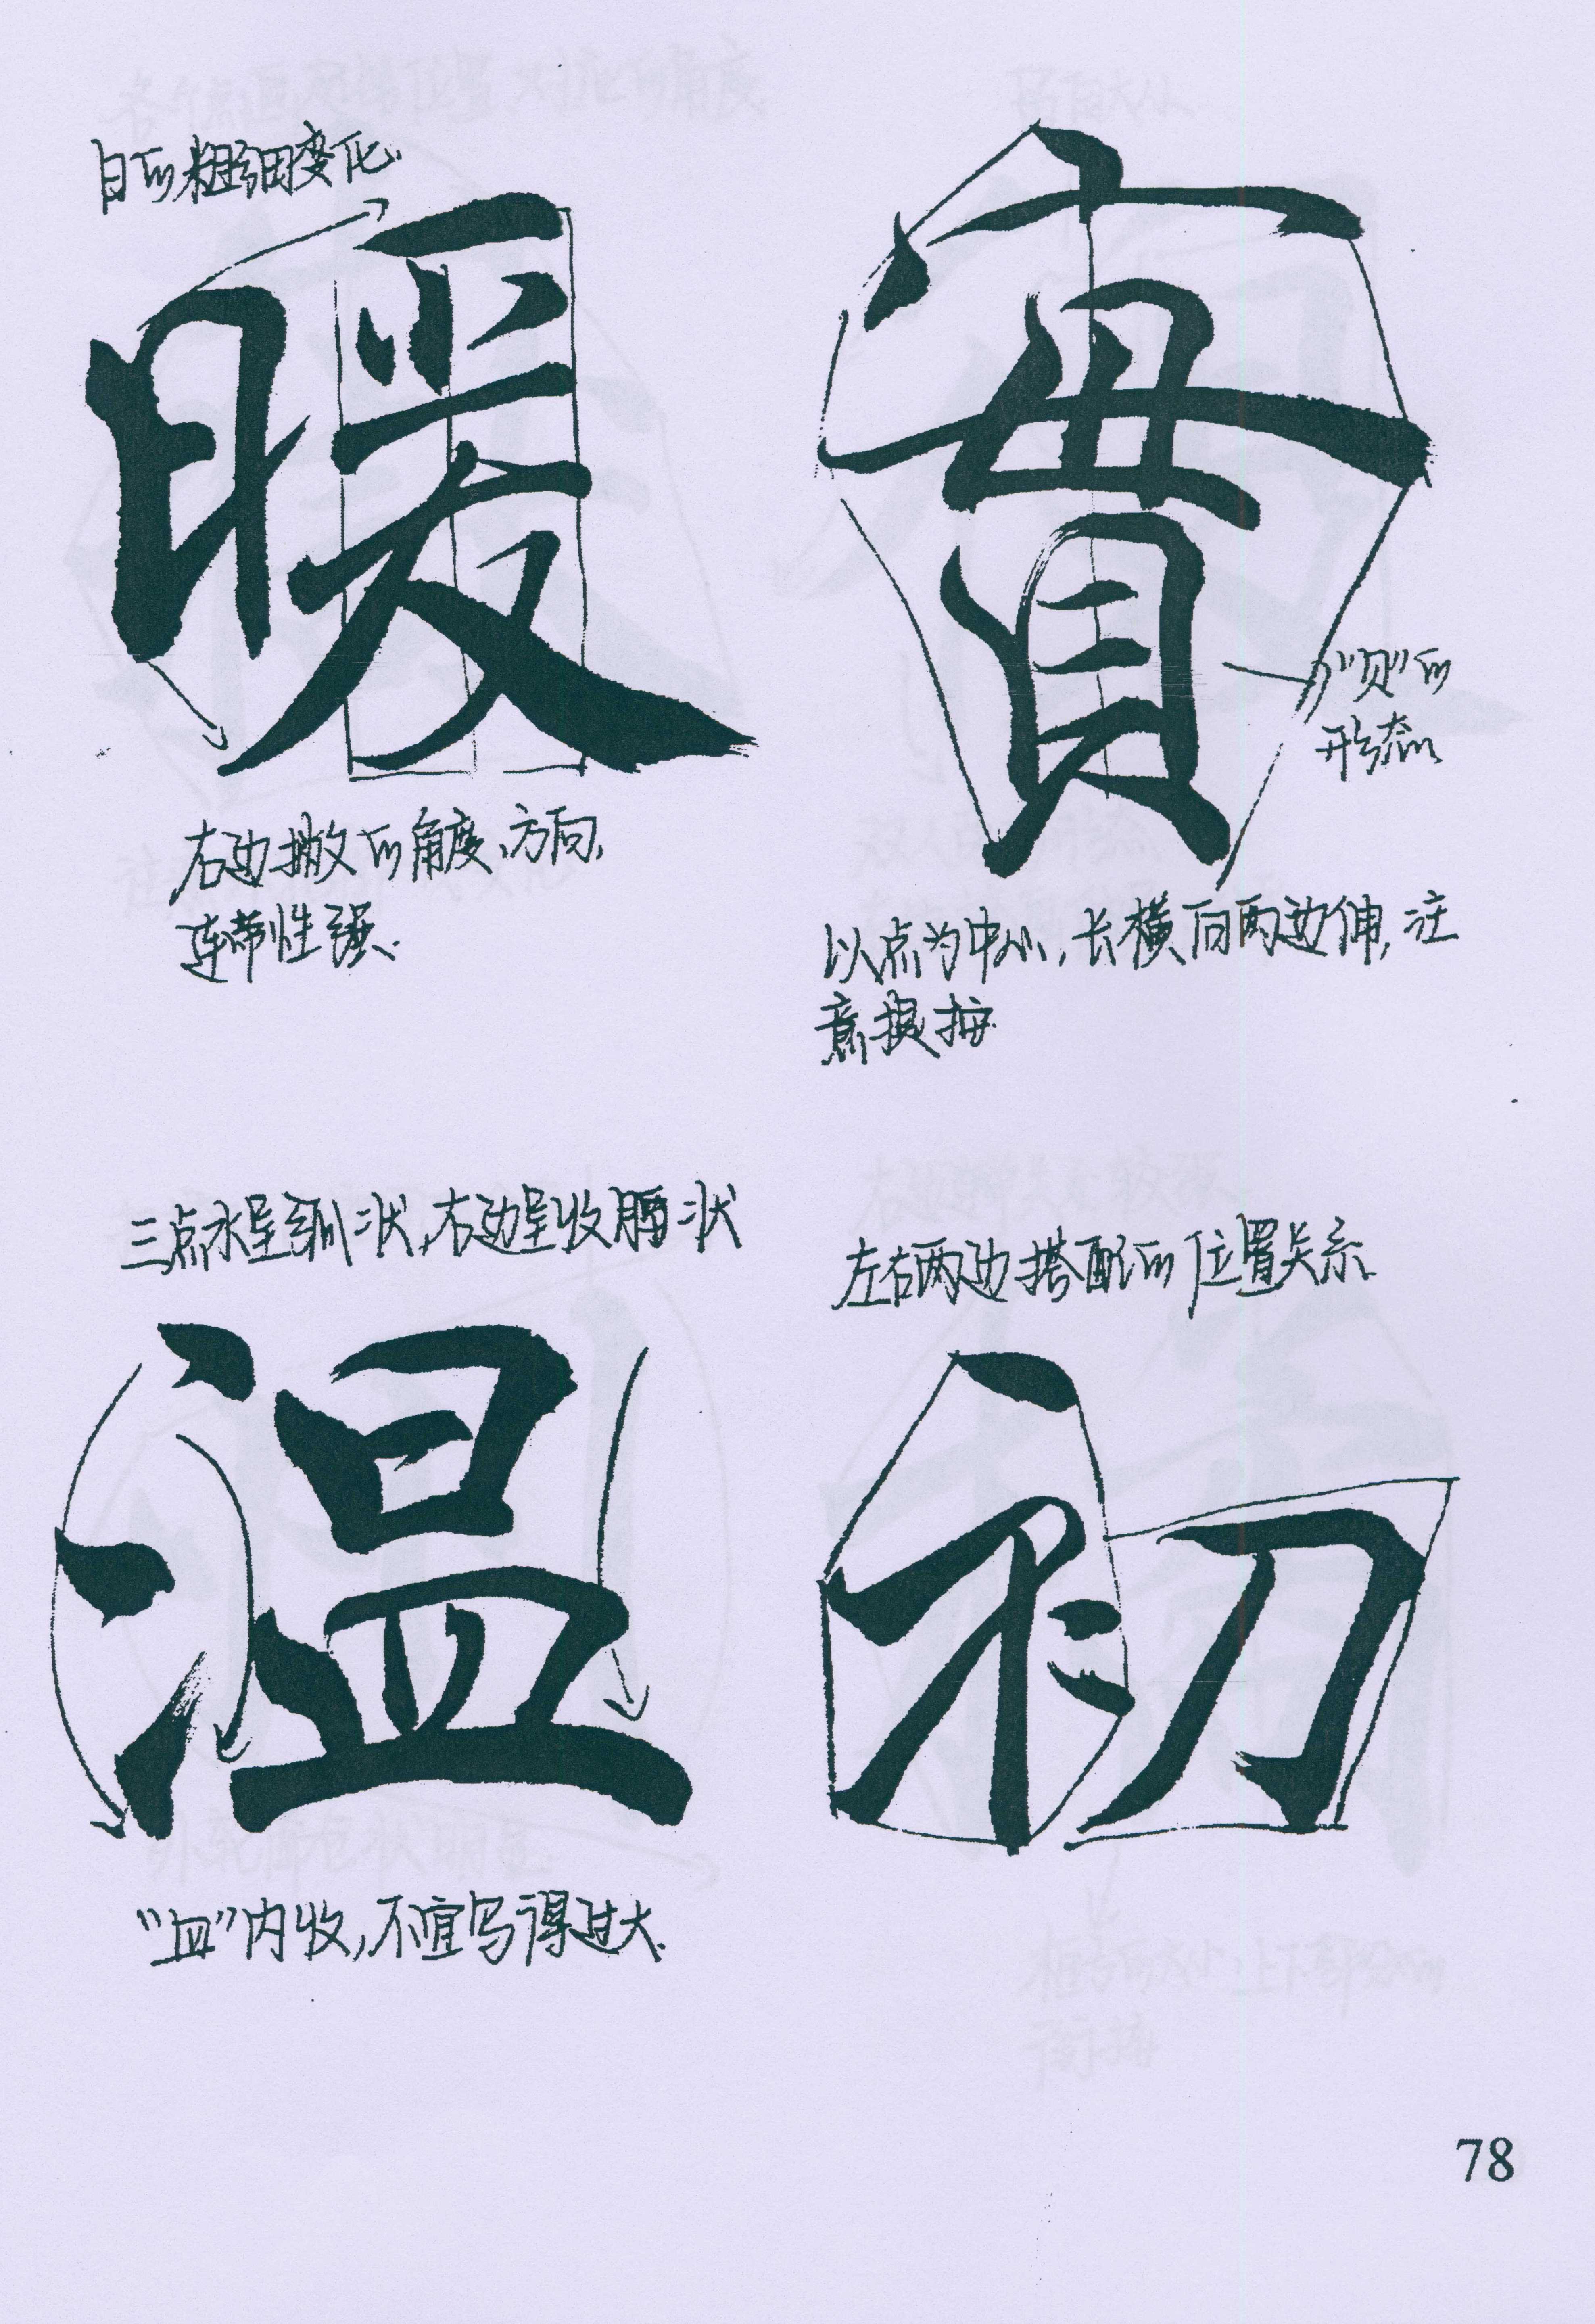 日的粗细变化.
暖
右边撇的角度、方向,
连带性强.
實
“贝”的
形态.
以点为中心,长横向两边伸,注
意提按.
三点水呈弧状,右边呈收腰状
温
“皿”内收,不宜写得过大.
左右两边搭配的位置关系.
初
78